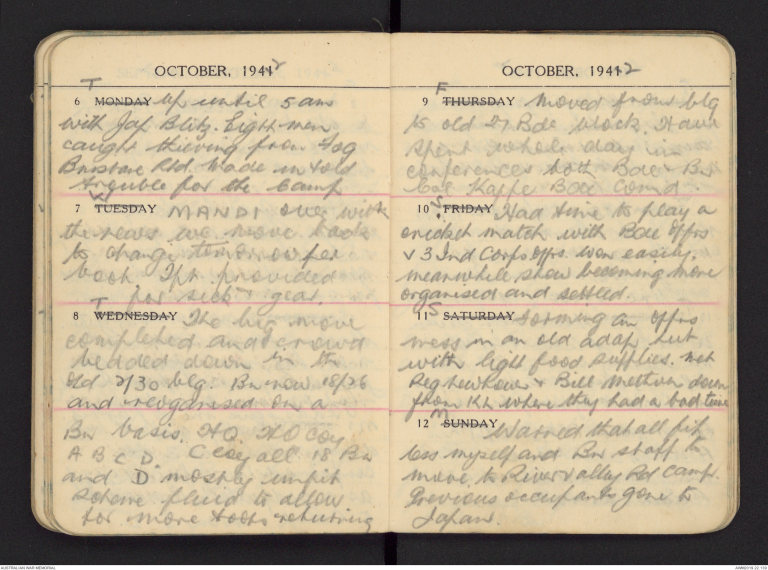 OCTOBER, 1941 2
T
6 MONDAY up until 5 am
with Jap Blitz. Eight men
caught thieving from Fog
Brisbane Rd. Wade in told
trouble for the Camp
W
7 TUESDAY MANDI over with
the news we move back
to Changi tomorrow per
boot. Tpt provided
for sick & gear.
T
8 WEDNESDAY The big move
completed and crowd
bedded down in the
old 2/30 blg. Bn now 18/26
and reorganised on a
Bn basis. HQ. HQ Coy
A B C D. C Coy all 18 Bn
and D mostly unfit
scheme fluid to allow
for more troops returning
OCTOBER, 1941 2
F
9 THURSDAY Moved from blg
to old 27 Bde block. Have
spent whole day in
conferences both Bde & Bn
Col Kappe Bde Comd.
S
10 FRIDAY Had time to play a
cricket match with Bde Offrs
v 3 Ind Corps Offrs. Won easily,
meanwhile show becoming more
organised and settled.
S
11 SATURDAY Forming an Offrs
mess in an old adap hut
with light food supplies. Met
Reg Newton & Bill Mettam down
from KL where they had a bad time
M
12 SUNDAY Warned that all fit
less myself and Bn staff to
move to River Valley Rd Camp.
Previous occupants gone to
Japan.
AUSTRALIAN WAR MEMORIAL